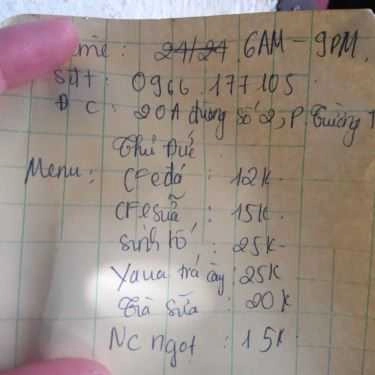 Time: 24/24 6AM - 9PM.
Sđt: 0966.177105
Đ C: 20A đường Số 2, P. Trường T
Thủ Đức
Menu: CFe đá : 12K
CFe sữa : 15K
Sinh tố : 25K
Yaua trái cây : 25K
Trà Sữa : 20K
NC ngọt : 15K